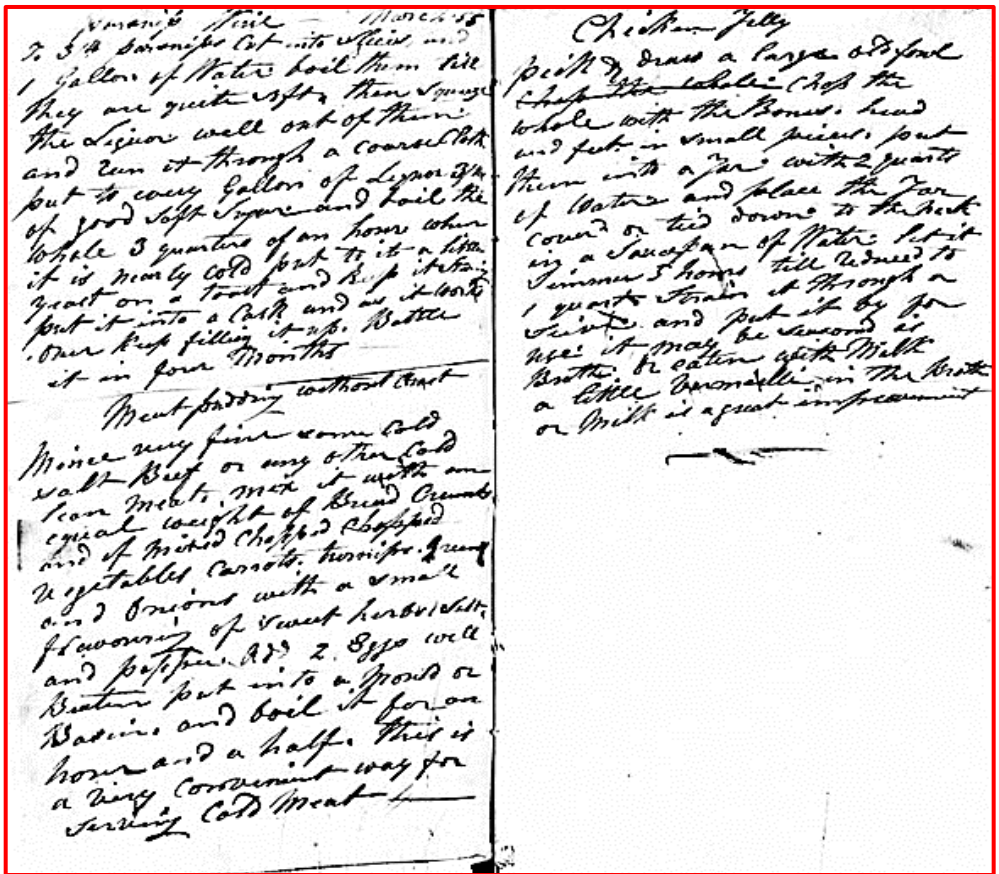 Parsnip Wine — March 55
To 3 lb parsnips Cut into Slices, and
1 Gallon of Water boil them till
they are quite soft, then squeeze
the Liquor well out of them
and run it through a coarse Cloth
put to every Gallon of Liquor 3 lbs
of good soft Sugar and boil the
whole 3 quarters of an hour when
it is nearly cold put to it a little
yeast on a toast and keep it
put it into a Cask and as it works
over keep filling it up. Bottle
it in four Months
Meat pudding without Crust
Mince very fine some Cold
salt Beef or any other Cold
lean Meat. mix it with an
equal weight of Bread Crumbs
and of mixed Chopped Chopped
vegetables Carrots. turnips. greens
and Onions with a small
flavouring of sweet herbs, salt,
and pepper. Add 2 Eggs well
Beaten put into a Mould or
Basin. and boil it for an
hour and a half. this is
a very convenient way for
serving Cold Meat
Chicken Jelly
pick & draw a large old fowl
Chop the whole Chop the
whole with the Bones. head
and feet in small pieces. put
them into a Jar with 2 quarts
of Water and place the Jar
cover'd or tied down. to the neck
in a Saucepan of Water. Let it
Simmer 5 hours till reduced to
1 quart. Strain it through a
Seive and put it by for
use. it may be seasond as
Broth. or eaten with Milk
a little Vermicelli in the Broth
or Milk is a great improvement